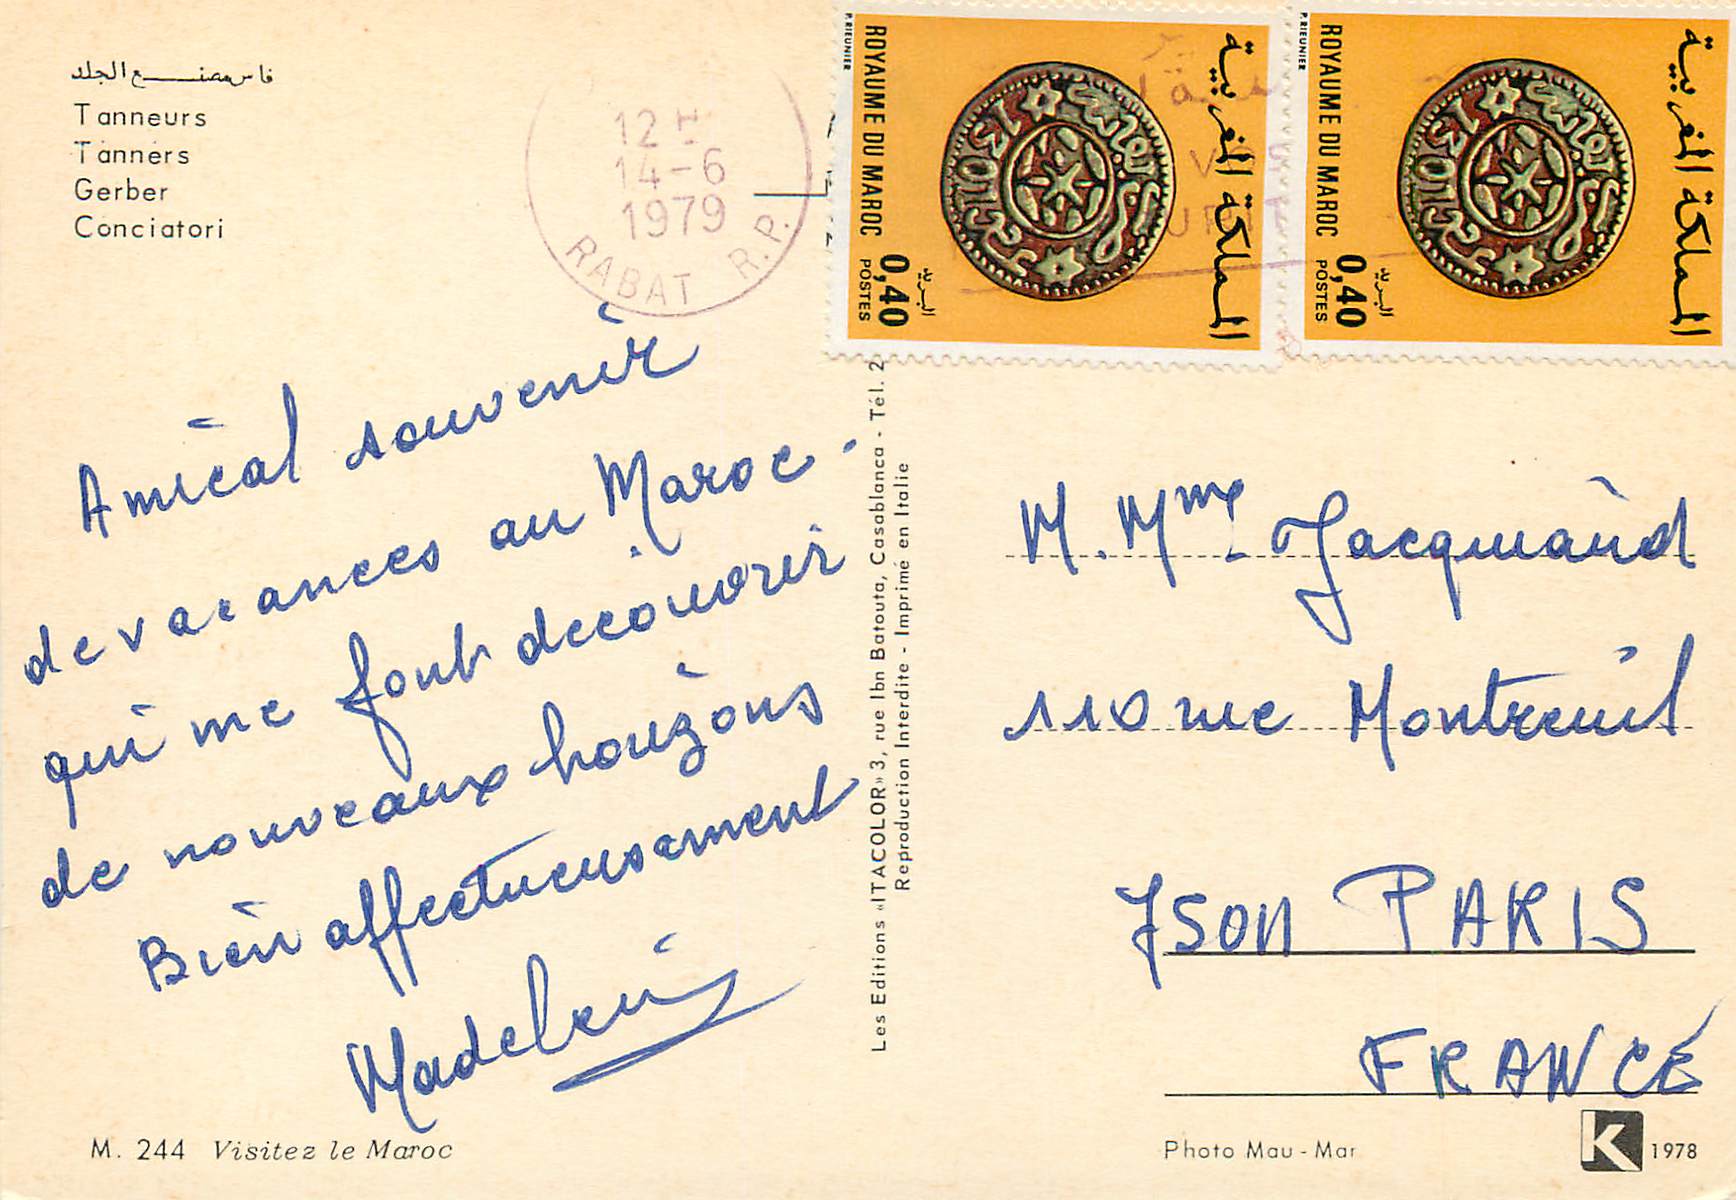 فاس مصنع الجلد
Tanneurs
Tanners
Gerber
Conciatori
12H
14-6
1979
RABAT R.P.
P. RIEUNIER
ROYAUME DU MAROC
0,40
POSTES
البريد
المملكة المغربية
P. RIEUNIER
ROYAUME DU MAROC
0,40
POSTES
البريد
المملكة المغربية
Amical souvenir
de vacances au Maroc.
qui me font decouvrir
de nouveaux horizons
Bien affectueusement
Madeleine
Les Editions «ITACOLOR» 3, rue Ibn Batouta, Casablanca - Tél. 2
Reproduction Interdite - Imprimé en Italie
M. Mme. Jacquiaud
110 rue Montreuil
75011 PARIS
FRANCE
M. 244 Visitez le Maroc
Photo Mau-Mar
K 1978